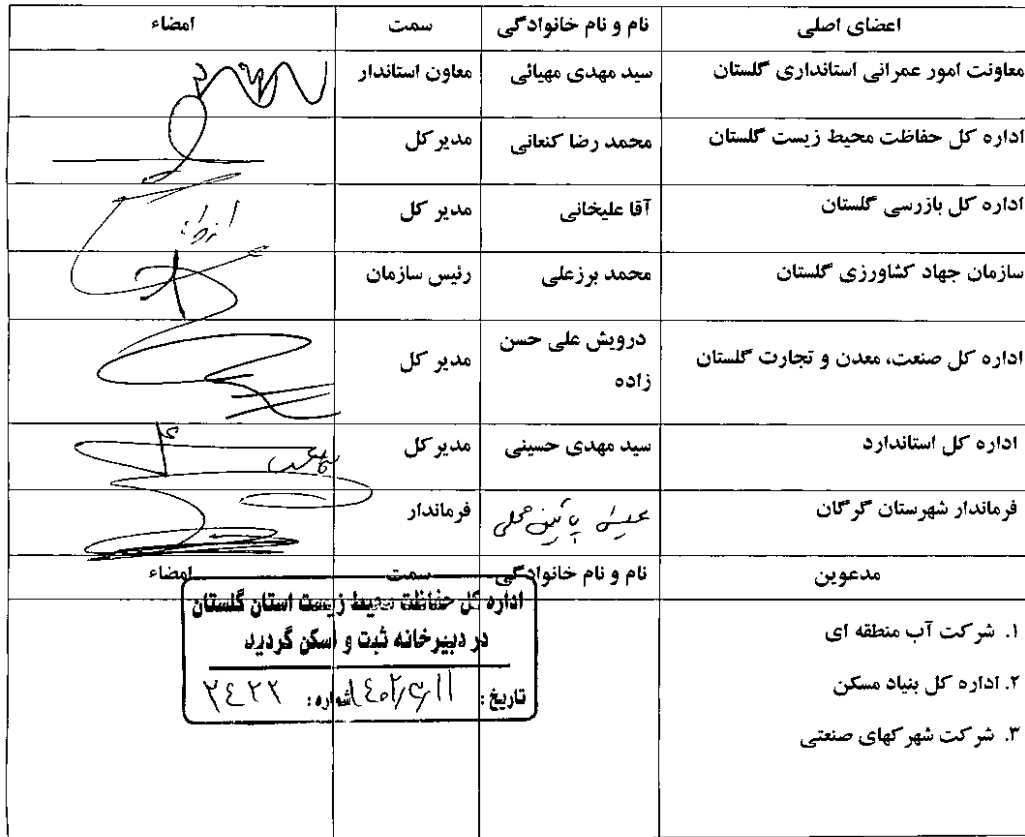 اعضای اصلی نام و نام خانوادگی سمت امضاء
معاونت امور عمرانی استانداری گلستان سید مهدی مهیائی معاون استاندار
اداره کل حفاظت محیط زیست گلستان محمد رضا کنعانی مدیر کل
اداره کل بازرسی گلستان آقا علیخانی مدیر کل
سازمان جهاد کشاورزی گلستان محمد برزعلی رئیس سازمان
اداره کل صنعت، معدن و تجارت گلستان درویش علی حسن زاده مدیر کل
اداره کل استاندارد سید مهدی حسینی مدیر کل
فرماندار شهرستان گرگان فرماندار
مدعوین نام و نام خانوادگی سمت امضاء
۱. شرکت آب منطقه ای
۲. اداره کل بنیاد مسکن
۳. شرکت شهرکهای صنعتی
اداره کل حفاظت محیط زیست استان گلستان
در دبیرخانه ثبت و اسکن گردید
تاریخ: شماره: ۲۴۲۲